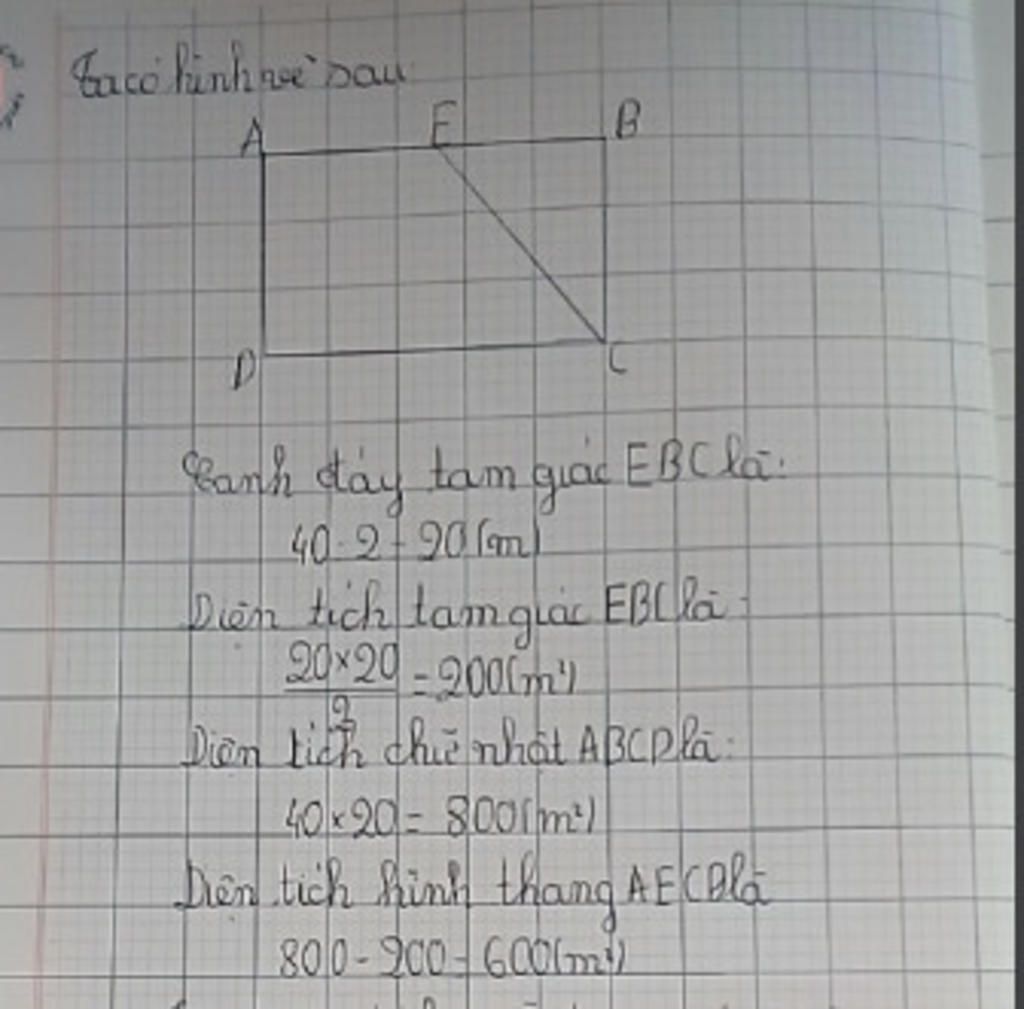 Ta có hình vẽ sau
A E B
D C
Cạnh đáy tam giác EBC là:
40 : 2 = 20 (m)
Diện tích tam giác EBC là:
20 × 20 / 2 = 200 (m²)
Diện tích chữ nhật ABCD là:
40 × 20 = 800 (m²)
Diện tích hình thang AECD là
800 - 200 = 600 (m²)